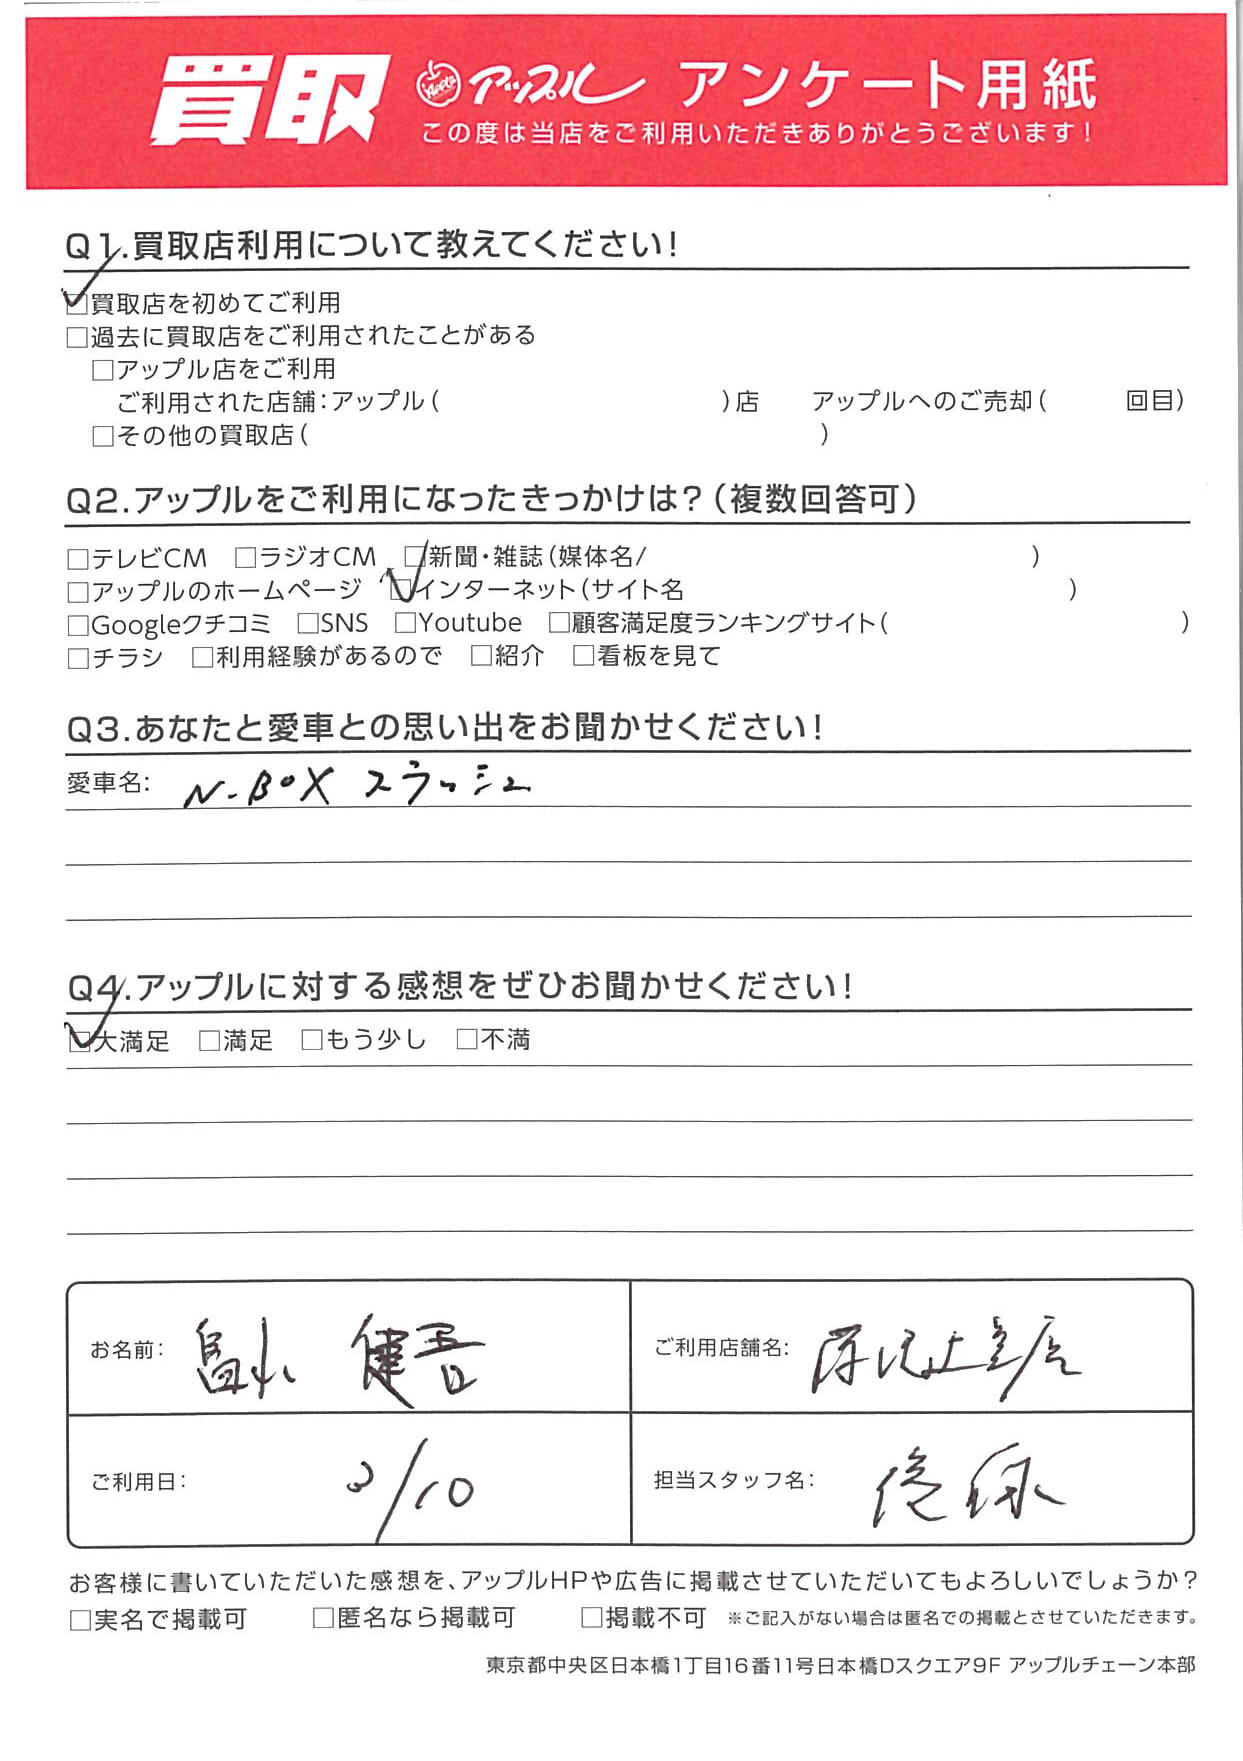 買取 Apple アップル アンケート用紙
この度は当店をご利用いただきありがとうございます!
Q1.買取店利用について教えてください!
☑買取店を初めてご利用
□過去に買取店をご利用されたことがある
□アップル店をご利用
ご利用された店舗:アップル( )店 アップルへのご売却( 回目)
□その他の買取店( )
Q2.アップルをご利用になったきっかけは?(複数回答可)
□テレビCM □ラジオCM □新聞・雑誌(媒体名/ )
□アップルのホームページ ☑インターネット(サイト名 )
□Googleクチコミ □SNS □Youtube □顧客満足度ランキングサイト( )
□チラシ □利用経験があるので □紹介 □看板を見て
Q3.あなたと愛車との思い出をお聞かせください!
愛車名: N-BOX スラッシュ
Q4.アップルに対する感想をぜひお聞かせください!
☑大満足 □満足 □もう少し □不満
お名前: 健吾
ご利用店舗名: 店
ご利用日: 3/10
担当スタッフ名:
お客様に書いていただいた感想を、アップルHPや広告に掲載させていただいてもよろしいでしょうか?
□実名で掲載可 □匿名なら掲載可 □掲載不可 ※ご記入がない場合は匿名での掲載とさせていただきます。
東京都中央区日本橋1丁目16番11号日本橋Dスクエア9F アップルチェーン本部